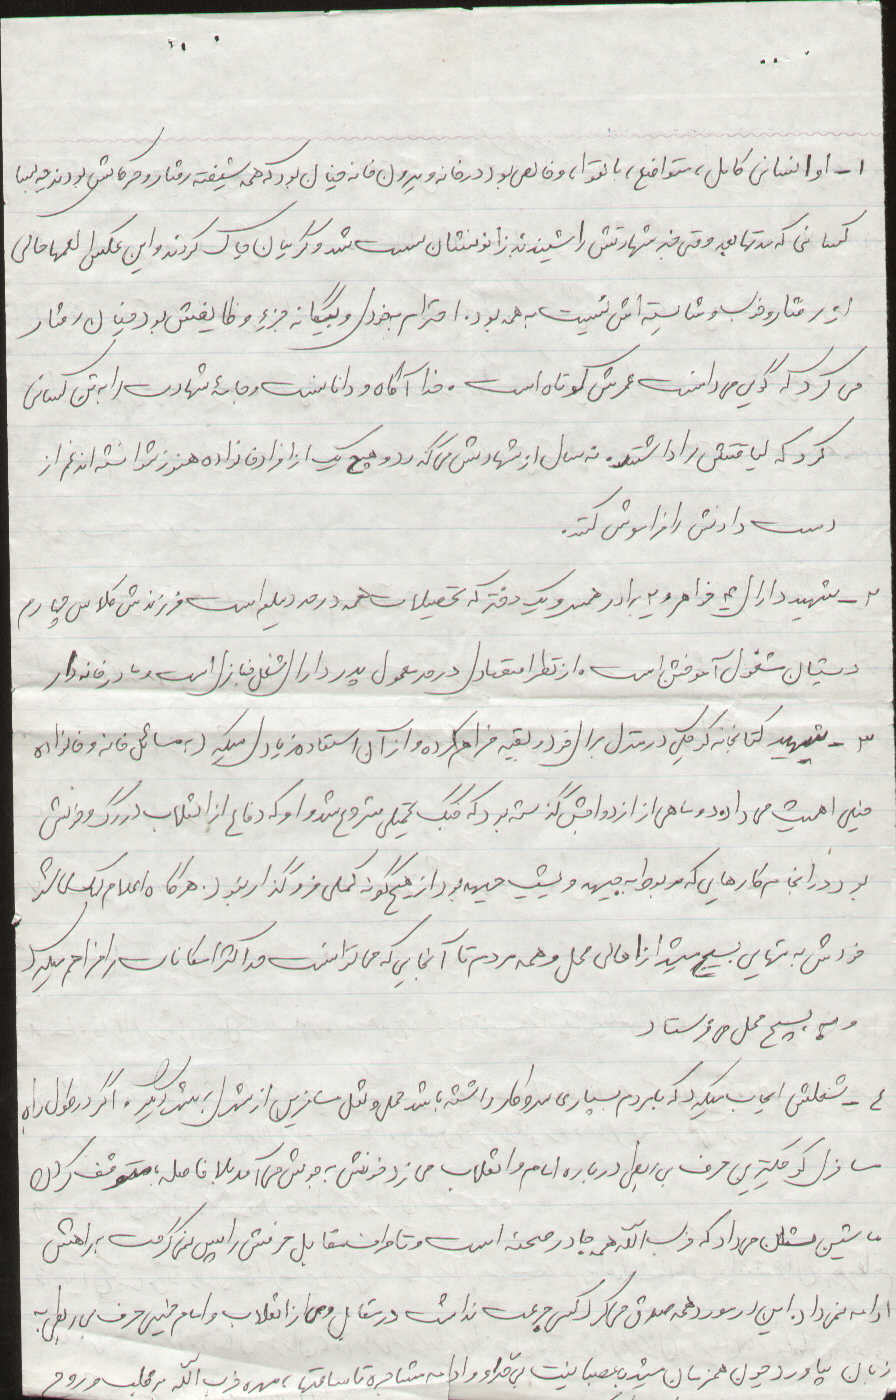 ۱- او انسانی کامل، متواضع، با تقوا، و خالص بود در خانه و بیرون خانه چنان بود که همه شیفته رفتار و حرکاتش بودند چه بسا
کسانی که مدتها بعد وقتی خبر شهادتش را شنیدند زانوهشان سست شد و گریبان چاک کردند و این عکس العملها حاکی
از رفتار و خوب و شایسته اش نسبت به همه بود. احترام به خودی و بیگانه جزء وظایفش بود چنان رفتار
می کرد که گویی می دانست عمرش کوتاه است. خدا آگاه و داناست و جامهٔ شهادت را به تن کسانی
کرد که لیاقتش را داشتند. نه سال از شهادتش می گذرد و هیچ یک از افراد خانواده هنوز نتوانسته اند غم از
دست دادنش را فراموش کنند.
۲- شهید دارای ۴ خواهر و ۲ برادر همسر و یک دختر که تحصیلات همه در حد دیپلم است فرزندش کلاس چهارم
دبستان مشغول آموختن است. از نظر اقتصادی در حد معمول پدر دارای شغل خبازی است و مادر خانه دار
۳- شهید کتابخانه کوچکی در منزل برای خود و بقیه فراهم کرده و از آن استفاده زیادی میکرد به مسائل خانه و خانواده
خیلی اهمیت می داد دو ماهی از ازدواجش گذشته بود که جنگ تحمیلی شروع شد و او که دفاع از انقلاب در رگ و خونش
بود در انجام کارهایی که مربوط به جبهه و پشت جبهه بود از هیچگونه کمکی فروگذار نبود. هر گاه اعلام کمک می شد
خودش به تنهایی بسیج میشد از اهالی محل و همه مردم تا آنجایی که می توانست حداکثر امکانات را فراهم میکرد
و به بسیج محل می فرستاد
۴- شغلش ایجاب میکرد که با مردم بسیاری سر و کار داشته باشد حمل و نقل مسافرین از شهری به شهر دیگر. اگر در طول راه
مسافری کوچکترین حرف بی ربطی درباره امام و انقلاب می زد خونش به جوش می آمد بلافاصله با متوقف کردن
ماشین نشان می داد که حزب الله همه جا در صحنه است و تا طرف مقابل حرفش را پس نمی گرفت به راهش
ادامه نمی داد. این در مورد همه صدق می کرد کسی جرعت نداشت در مقابل وی از انقلاب و امام خمینی حرف بی ربطی به
زبان بیاورد چون همزمان میشد با عصبانیت و ادامه مشاجره تا ساعتها، مهره حزب الله بر قلب و روح